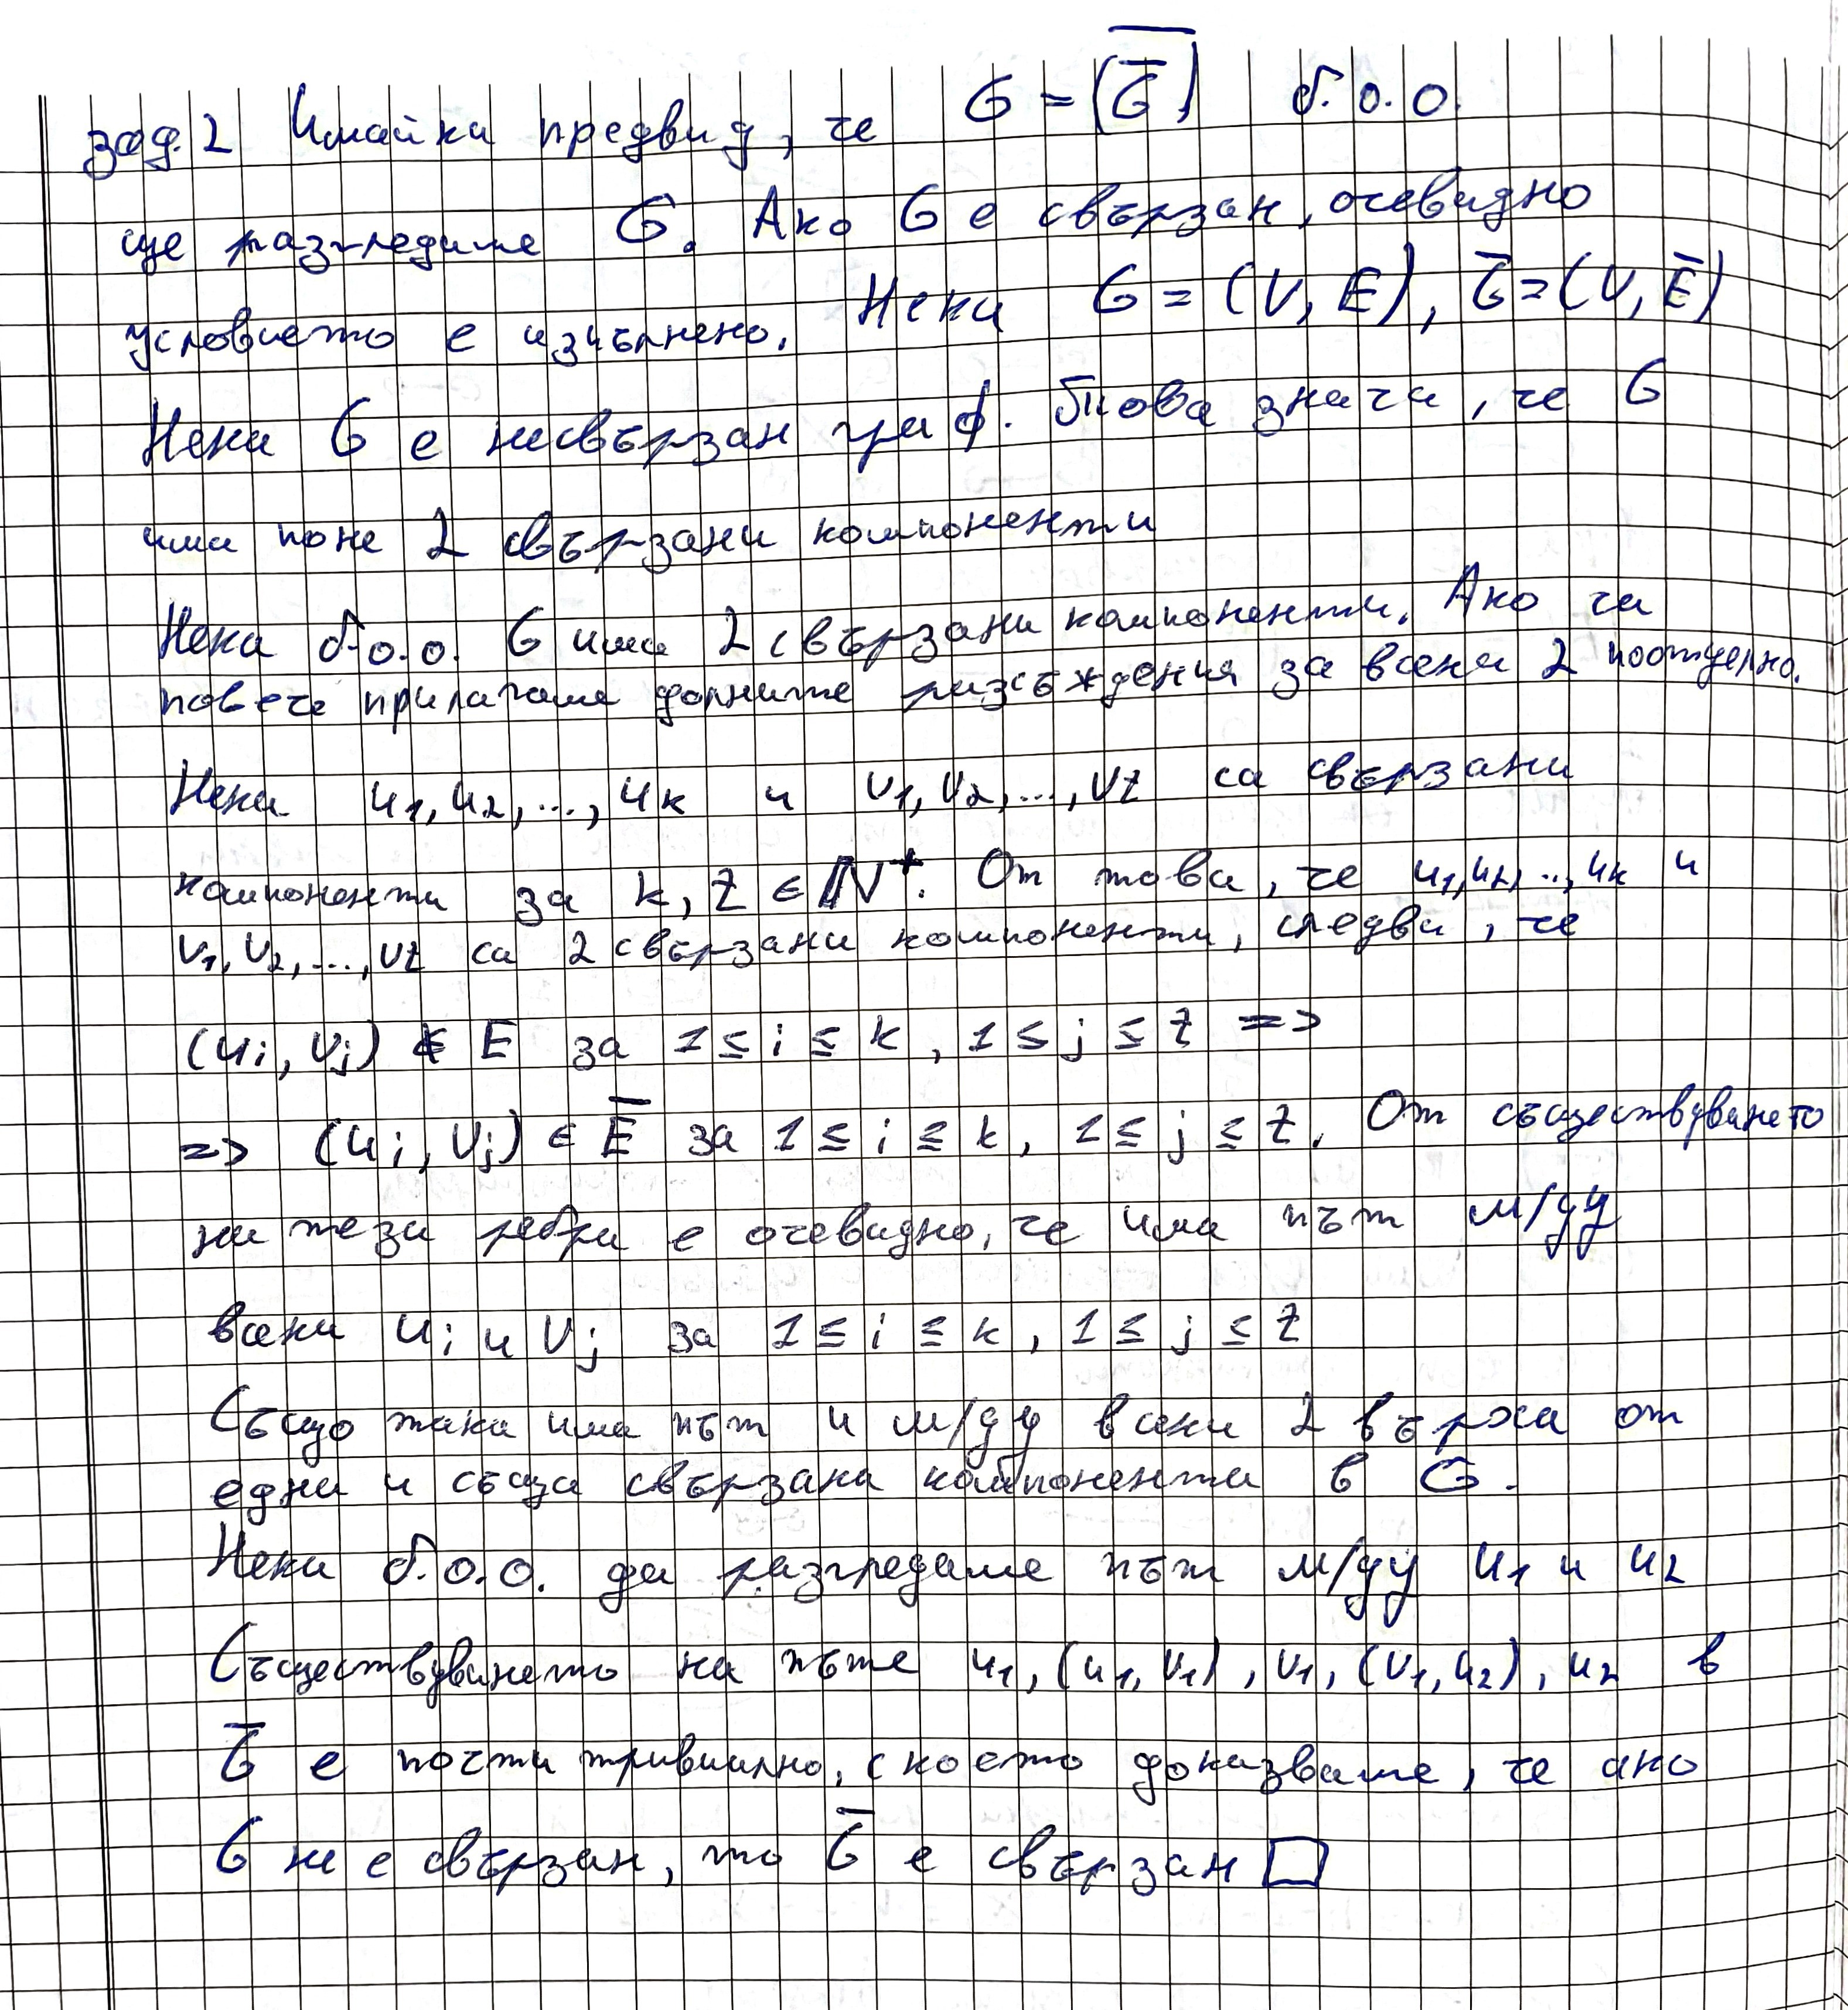 зад. 2 Имайки предвид, че G = \overline{(\overline{G})} б.о.о.
ще разгледаме G. Ако G е свързан, очевидно
условието е изпълнено. Нека G = (V, E), \overline{G} = (V, \overline{E})
Нека G е несвързан граф. Това значи, че G
има поне 2 свързани компоненти
Нека б.о.о. G има 2 свързани компоненти. Ако са
повече прилагаме долните разсъждения за всеки 2 поотделно.
Нека u₁, u₂, ..., uₖ и v₁, v₂, ..., v_z са свързани
компоненти за k, z ∈ ℕ⁺. От това, че u₁, u₂, ..., uₖ и
v₁, v₂, ..., v_z са 2 свързани компоненти, следва, че
(uᵢ, vⱼ) ∉ E за 1 ≤ i ≤ k, 1 ≤ j ≤ z =>
=> (uᵢ, vⱼ) ∈ \overline{E} за 1 ≤ i ≤ k, 1 ≤ j ≤ z. От съществуването
на тези ребра е очевидно, че има път м/ду
всеки uᵢ и vⱼ за 1 ≤ i ≤ k, 1 ≤ j ≤ z
Също така има път и м/ду всеки 2 върха от
една и съща свързана компонента в G.
Нека б.о.о. да разгледаме път м/ду u₁ и u₂
Съществуването на пътя u₁, (u₁, v₁), v₁, (v₁, u₂), u₂ в
\overline{G} е почти тривиално, с което доказваме, че ако
G не е свързан, то \overline{G} е свързан □